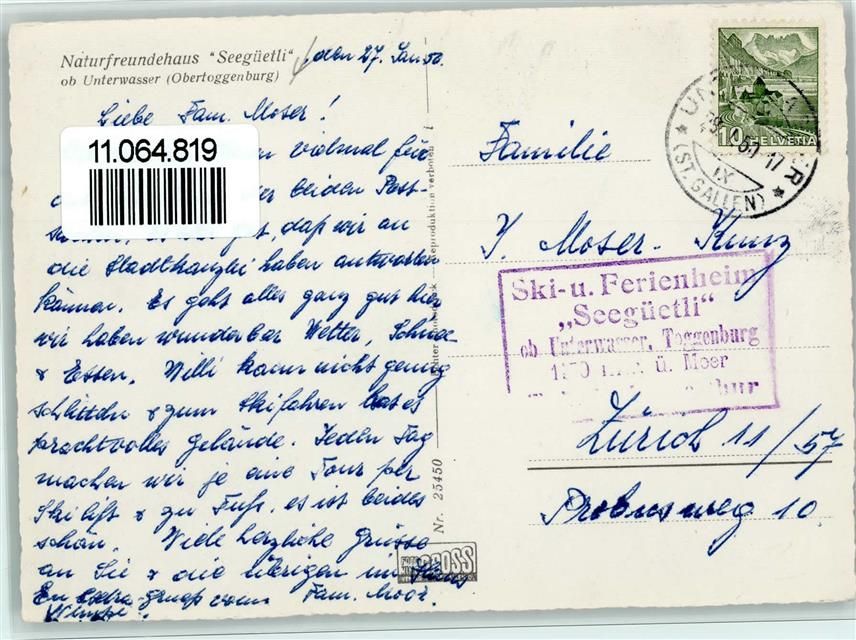 Naturfreundehaus "Seegüetli"
ob Unterwasser (Obertoggenburg)
, den 27. Jan. 50.
Liebe Fam. Moser!
11.064.819
vielmal für
beiden Post-
daß wir an
die Stadtkanzlei haben antworten
können. Es geht alles ganz gut hier
wir haben wunderbar Wetter, Schnee
& Essen. Willi kann nicht genug
schlitteln & zum Skifahren hat es
prachtvolles Gelände. Jeden Tag
machen wir je eine Tour per
Skilift & zu Fuß. es ist beides
schön. Viele herzliche Grüsse
an Sie & die übrigen im Haus
Ein Extra-Gruss vom Fam. Moor.
Nr. 25450
Reproduktion verboten
GROSS
HELVETIA
10
UNTERWASSER
(ST. GALLEN)
IX
Familie
J. Moser-Kunz
Ski- u. Ferienheim
„Seegüetli"
ob Unterwasser, Toggenburg
ü. Meer
Zürich 11/57
Probusweg 10.